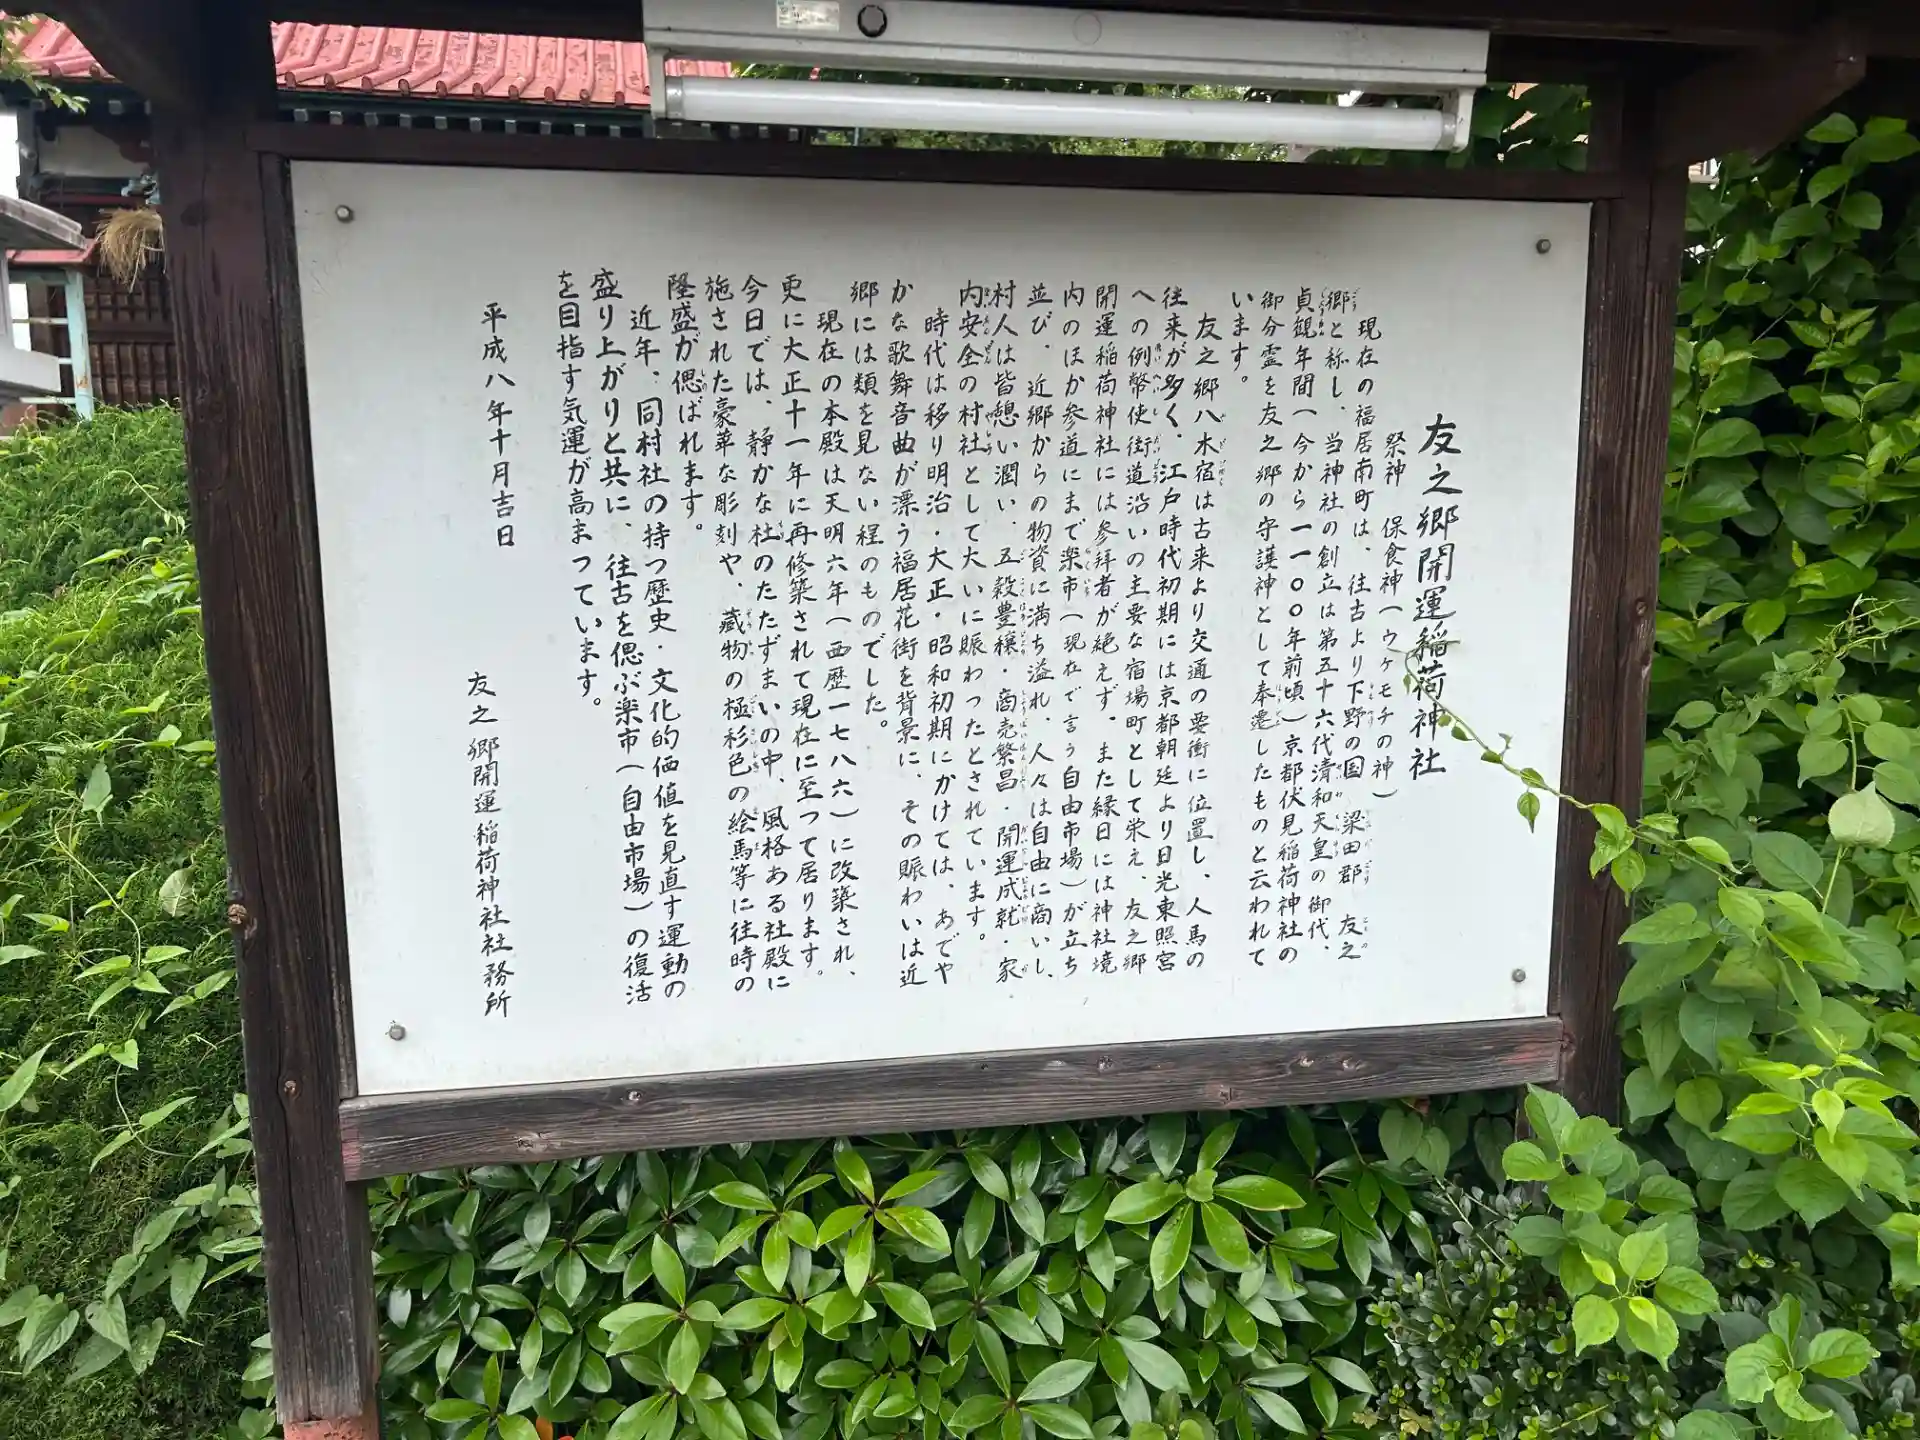 友之郷開運稲荷神社
祭神　保食神(ウケモチの神)
現在の福居南町は、往古より下野の国　梁田郡　友之
郷と称し、当神社の創立は第五十六代清和天皇の御代、
貞観年間(今から一一〇〇年前頃)京都伏見稲荷神社の
御分霊を友之郷の守護神として奉遷したものと云われて
います。
友之郷八木宿は古来より交通の要衝に位置し、人馬の
往来が多く、江戸時代初期には京都朝廷より日光東照宮
への例幣使街道沿いの主要な宿場町として栄え、友之郷
開運稲荷神社には参拝者が絶えず、また縁日には神社境
内のほか参道にまで楽市(現在で言う自由市場)が立ち
並び、近郷からの物資に満ち溢れ、人々は自由に商いし、
村人は皆憩い潤い、五穀豊穣・商売繁昌・開運成就・家
内安全の村社として大いに賑わったとされています。
時代は移り明治・大正・昭和初期にかけては、あでや
かな歌舞音曲が漂う福居花街を背景に、その賑わいは近
郷には類を見ない程のものでした。
現在の本殿は天明六年(西歴一七八六)に改築され、
更に大正十一年に再修築されて現在に至って居ります。
今日では、静かな杜のたたずまいの中、風格ある社殿に
施された豪華な彫刻や、蔵物の極彩色の絵馬等に往時の
隆盛が偲ばれます。
近年、同村社の持つ歴史・文化的価値を見直す運動の
盛り上がりと共に、往古を偲ぶ楽市(自由市場)の復活
を目指す気運が高まっています。
平成八年十月吉日
友之郷開運稲荷神社社務所